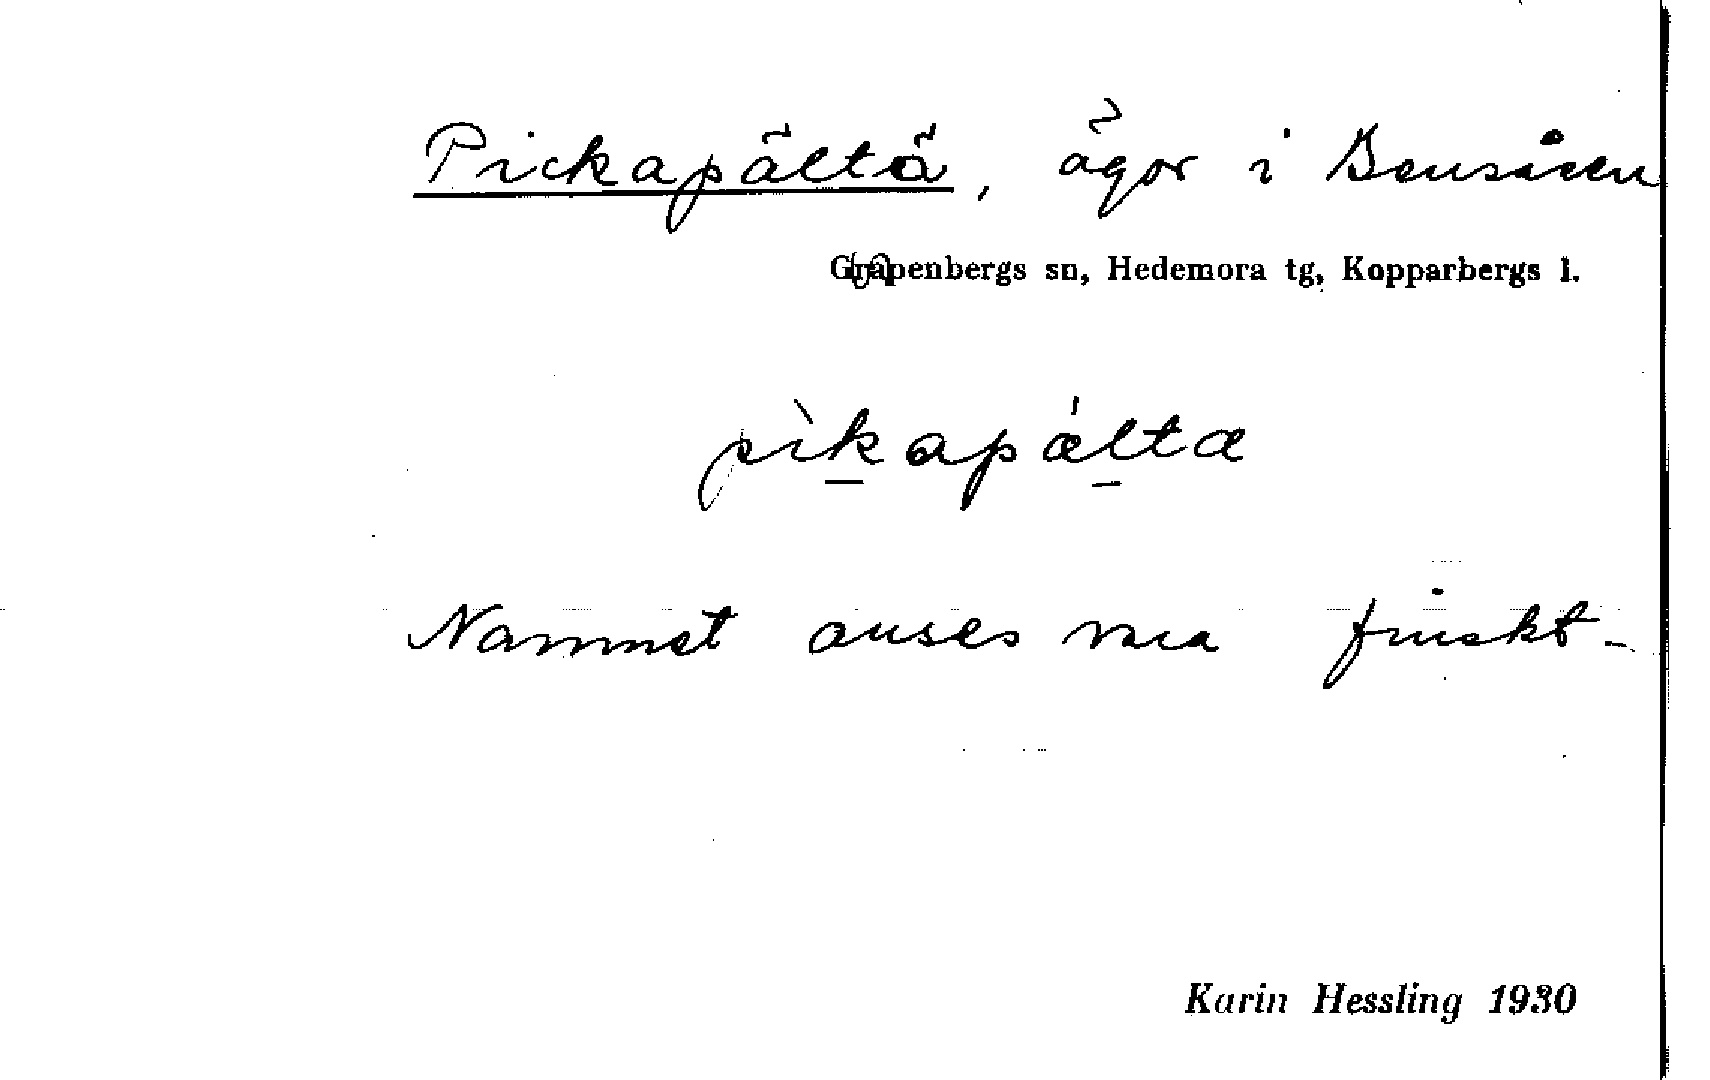 Pickapältä, ägor i Bensåsen
Garpenbergs sn, Hedemora tg, Kopparbergs l.
pìkapǽltæ
Namnet anses vara finskt-
Karin Hessling 1930